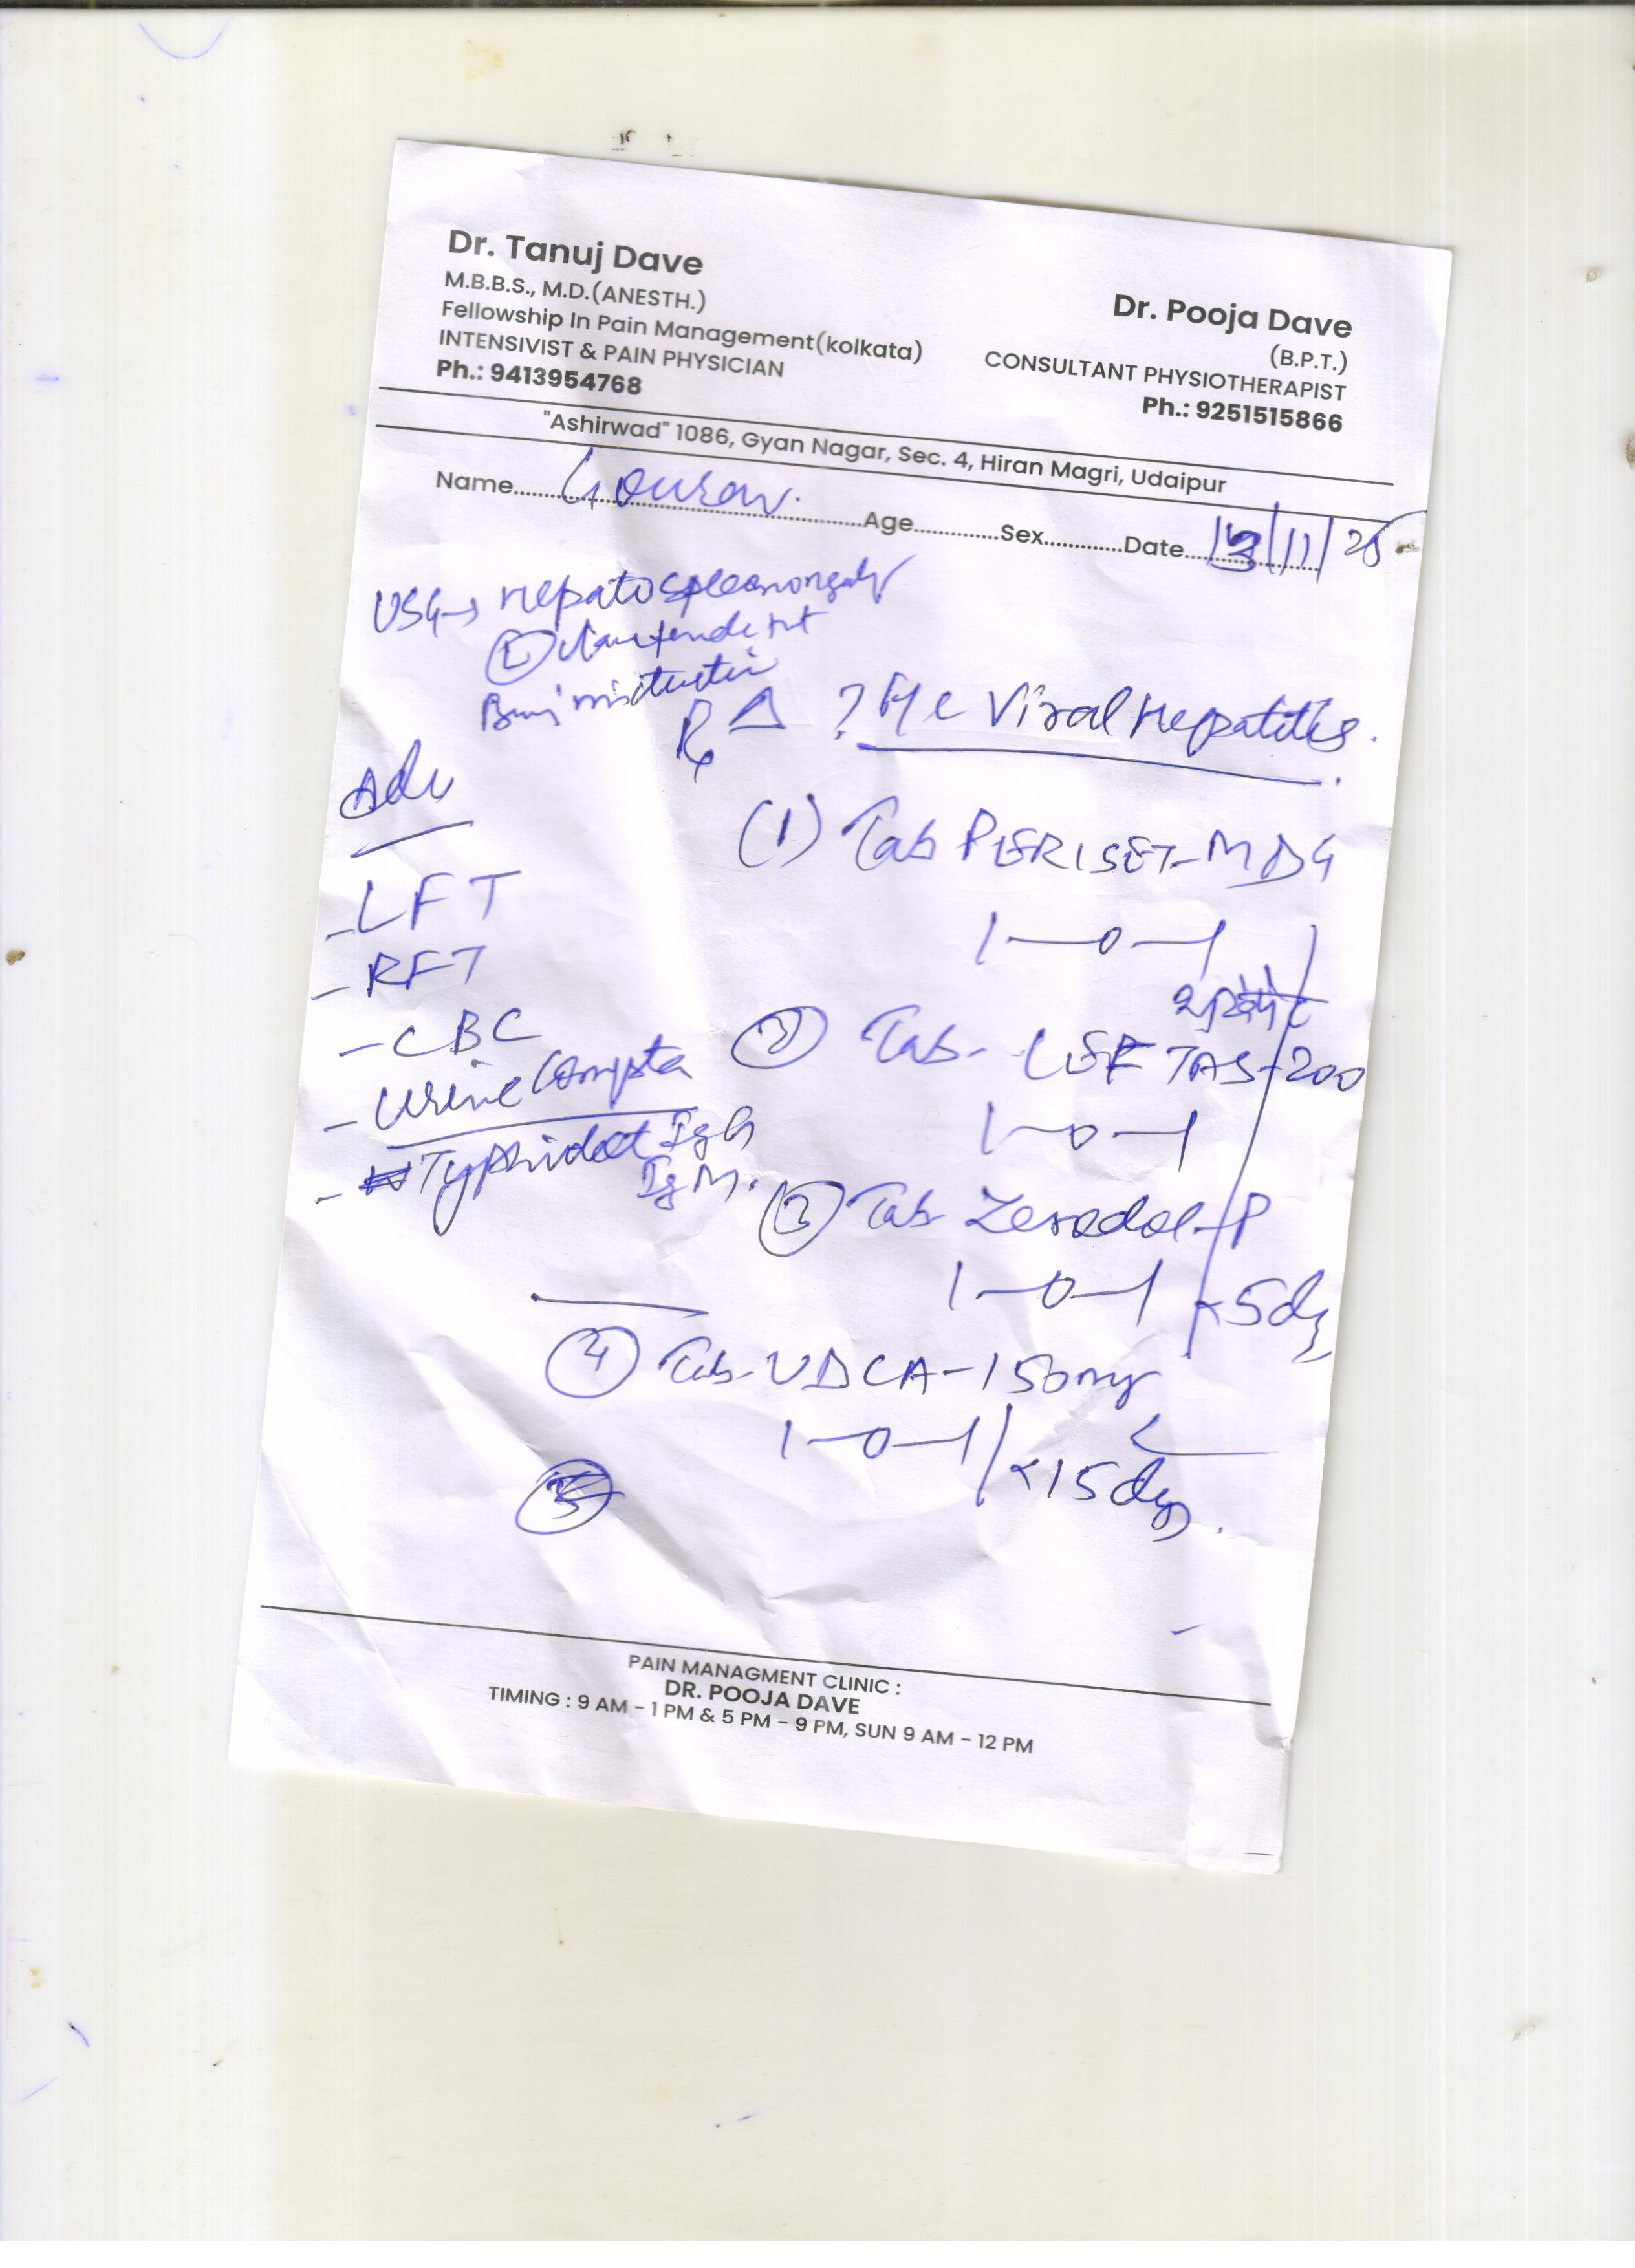 Dr. Tanuj Dave
M.B.B.S., M.D.(ANESTH.)
Fellowship In Pain Management(kolkata)
INTENSIVIST & PAIN PHYSICIAN
Ph.: 9413954768
Dr. Pooja Dave
(B.P.T.)
CONSULTANT PHYSIOTHERAPIST
Ph.: 9251515866
"Ashirwad" 1086, Gyan Nagar, Sec. 4, Hiran Magri, Udaipur
Name Gourav. Age Sex Date 13/11/25
USG→ Hepatosplenomegaly
(L)
Rx Δ ? Viral Hepatitis.
Adv
- LFT
- RFT
- CBC
- Urine Complete
- Typhidot IgG
IgM.
(1) Tab PERISET-MD4
1—0—1
(2) Tab-
-200
1—0—1
(3) Tab Zerodol-P
1—0—1 x 5days
(4) Tab-UDCA-150mg
1—0—1 x 15days.
PAIN MANAGMENT CLINIC :
DR. POOJA DAVE
TIMING : 9 AM - 1 PM & 5 PM - 9 PM, SUN 9 AM - 12 PM